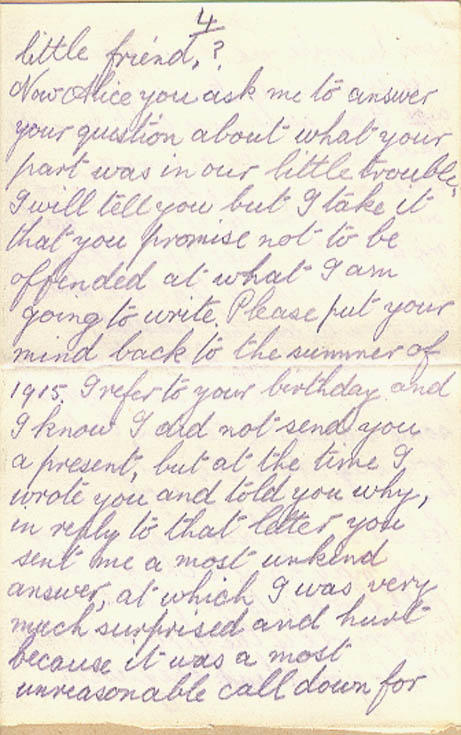 4
little friend,?
Now Alice you ask me to answer
your question about what your
part was in our little trouble,
I will tell you but I take it
that you promise not to be
offended at what I am
going to write. Please put your
mind back to the summer of
1915. I refer to your birthday and
I know I did not send you
a present, but at the time I
wrote you and told you why,
in reply to that letter you
sent me a most unkind
answer, at which I was very
much surprised and hurt
because it was a most
unreasonable call down for